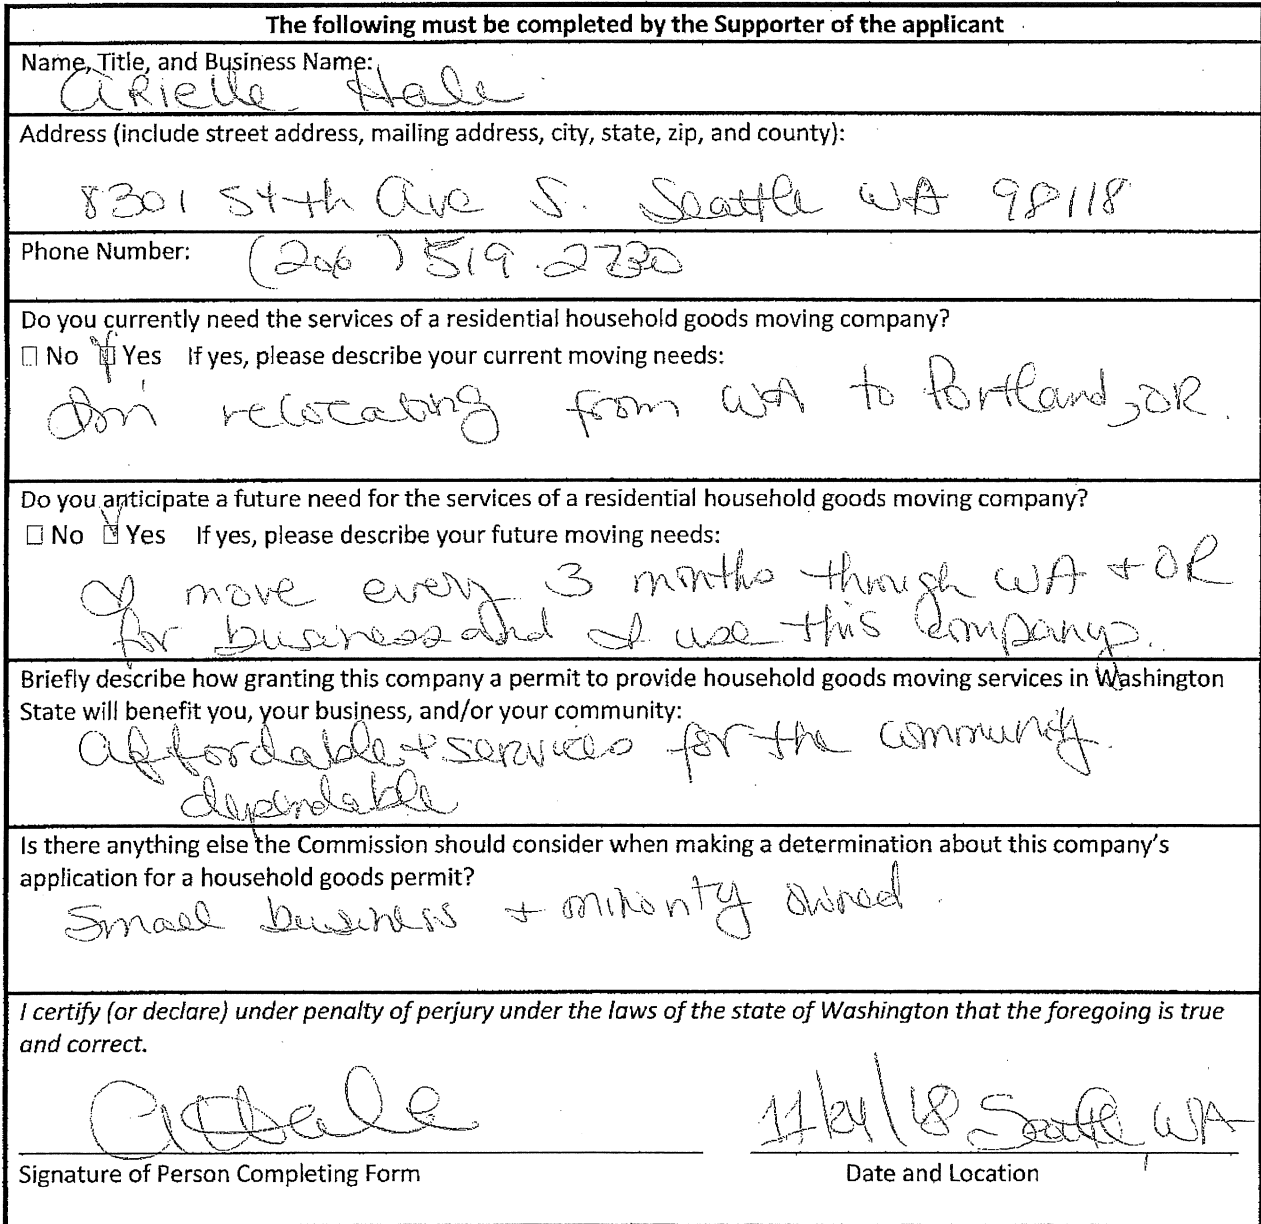 The following must be completed by the Supporter of the applicant
Name, Title, and Business Name:
Arielle Hale
Address (include street address, mailing address, city, state, zip, and county):
8301 54th Ave S. Seattle WA 98118
Phone Number: (206) 519.2730
Do you currently need the services of a residential household goods moving company?
☐ No ☒ Yes If yes, please describe your current moving needs:
I'm relocating from WA to Portland, OR.
Do you anticipate a future need for the services of a residential household goods moving company?
☐ No ☒ Yes If yes, please describe your future moving needs:
I move every 3 months through WA + OR
for business and I use this company.
Briefly describe how granting this company a permit to provide household goods moving services in Washington
State will benefit you, your business, and/or your community:
Affordable + services for the community.
dependable
Is there anything else the Commission should consider when making a determination about this company's
application for a household goods permit?
Small business + minority owned.
I certify (or declare) under penalty of perjury under the laws of the state of Washington that the foregoing is true
and correct.
AHale 11/24/18 Seattle, WA
Signature of Person Completing Form Date and Location